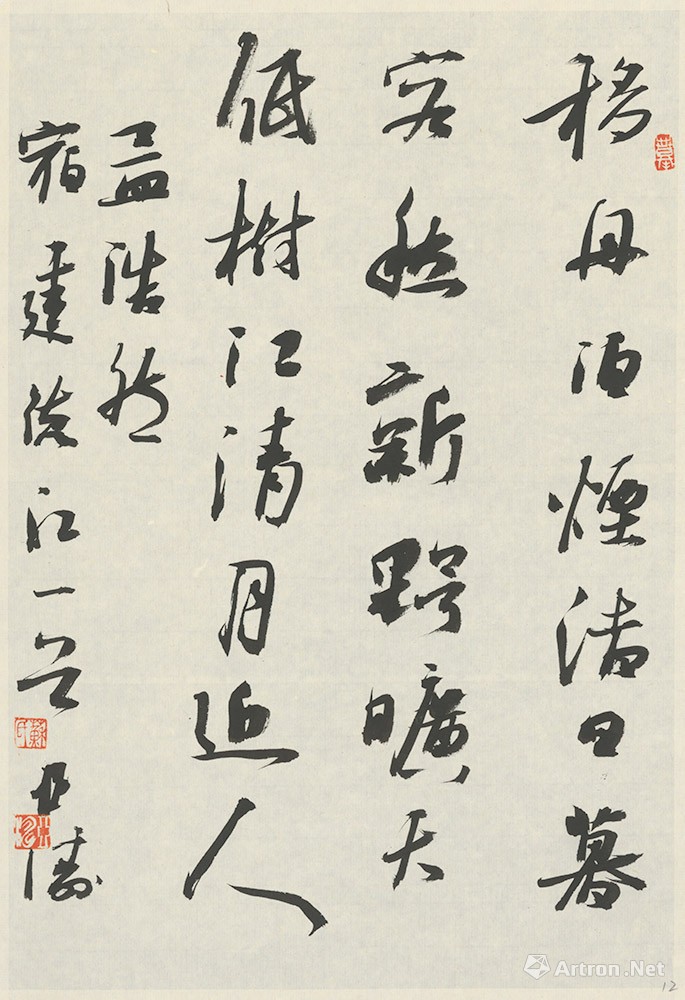 移舟泊煙渚日暮
客愁新野曠天
低樹江清月近人
孟浩然
宿建德江一首
Artron.Net
12